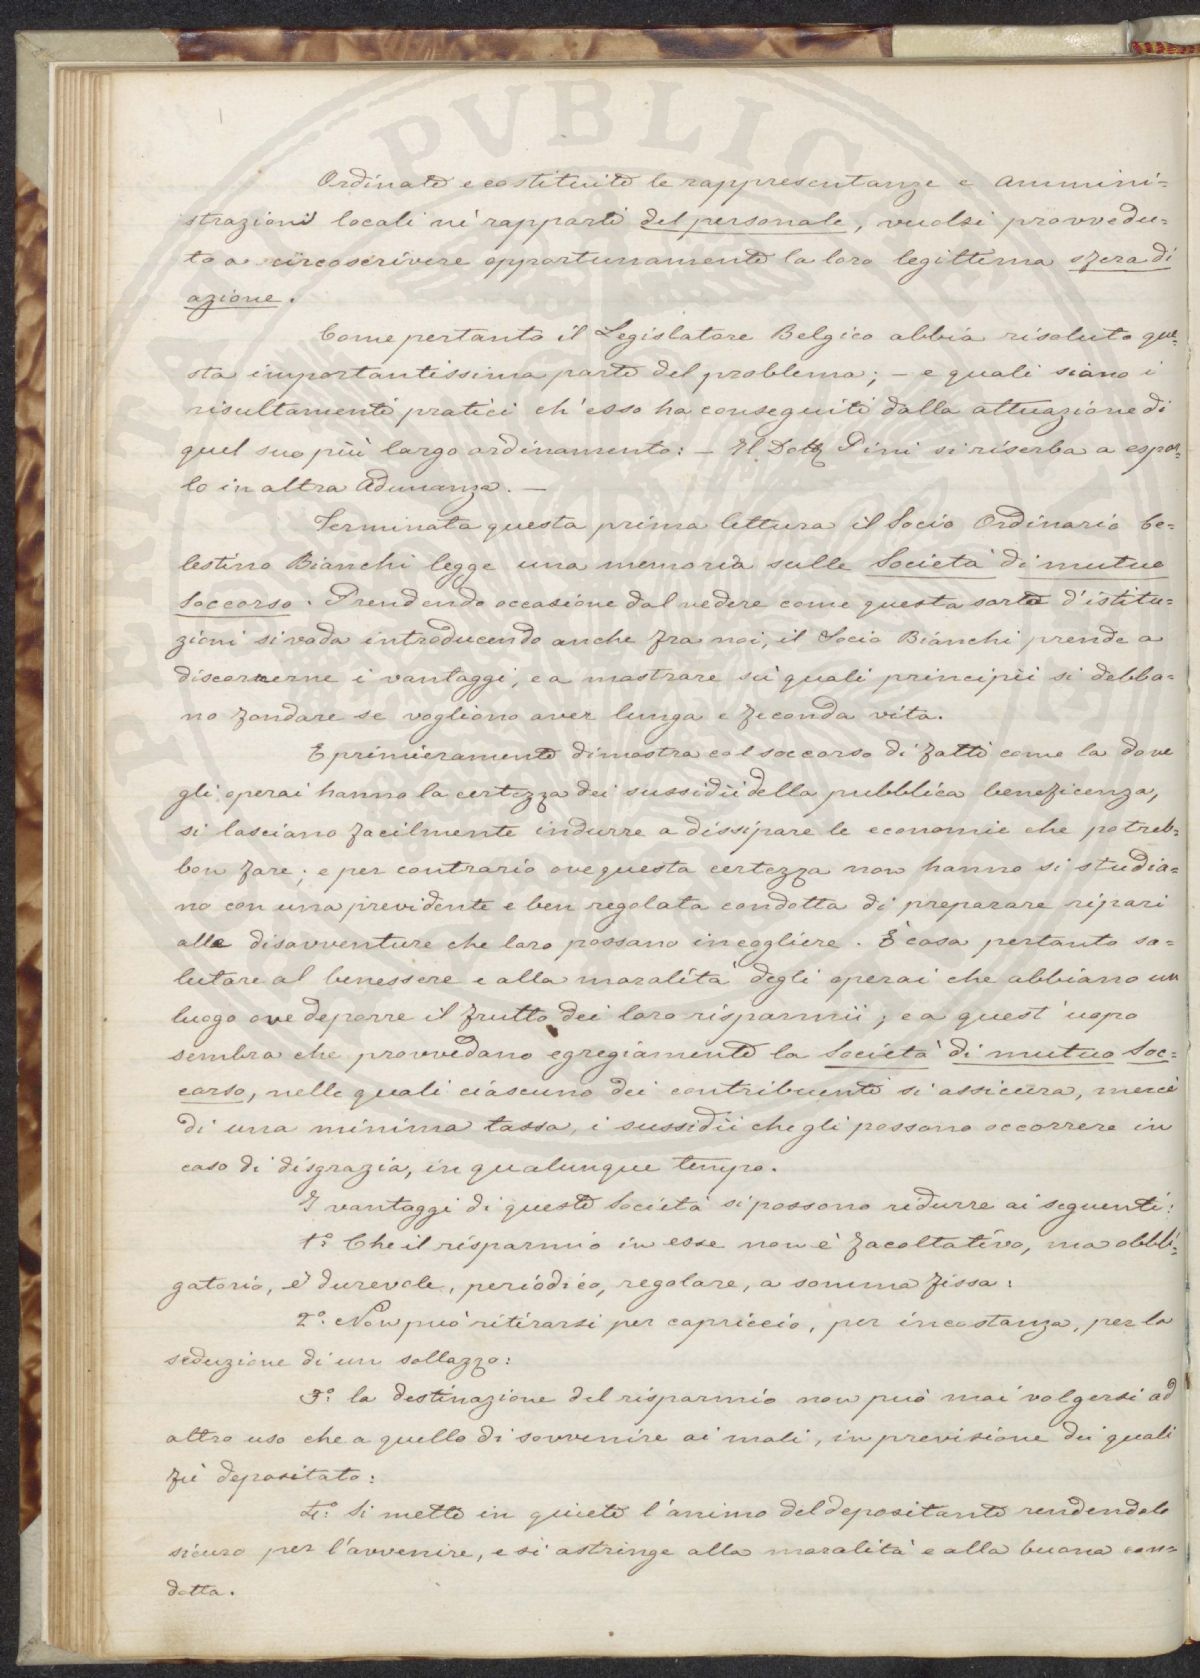 Ordinate e costituite le rappresentanze e ammini=
strazioni locali nei rapporti del personale, vuolsi provvedu=
to a circoscrivere opportunamente la loro legittima sfera di
azione.
Come pertanto il Legislatore Belgico abbia risoluto que=
sta importantissima parte del problema; – e quali siano i
risultamenti pratici ch'esso ha conseguiti dalla attuazione di
quel suo più largo ordinamento: – Il Dott Pini si riserba a espor=
lo in altra Adunanza. –
Terminata questa prima lettura il Socio Ordinario Ce=
lestino Bianchi legge una memoria sulle Società di mutuo
Soccorso. Prendendo occasione dal vedere come questa sorta d'istitu=
zioni si vada introducendo anche fra noi, il Socio Bianchi prende a
discorrerne i vantaggi, e a mostrare su quali principii si debba=
no fondare se vogliono aver lunga e feconda vita.
E primieramente dimostra col soccorso di fatti come la dove
gli operai hanno la certezza dei sussidii della pubblica beneficenza,
si lasciano facilmente indurre a dissipare le economie che potreb=
bon fare; e per contrario ove questa certezza non hanno si studia=
no con una previdente e ben regolata condotta di preparare ripari
alle disavventure che loro possano incogliere. È cosa pertanto sa=
lutare al benessere e alla moralità degli operai che abbiano un
luogo ove deporre il frutto dei loro risparmii; e a quest'uopo
sembra che provvedano egregiamente la Società di mutuo Soc=
corso, nelle quali ciascuno dei contribuenti si assicura, mercè
di una minima tassa, i sussidii che gli possono occorrere in
caso di disgrazia, in qualunque tempo.
I vantaggi di queste Società si possono ridurre ai seguenti:
1.° Che il risparmio in esse non è facoltativo, ma obbli=
gatorio, è durevole, periodico, regolare, a somma fissa:
2.° Non può ritirarsi per capriccio, per incostanza, per la
seduzione di un sollazzo:
3.° la destinazione del risparmio non può mai volgersi ad
altro uso che a quello di sovvenire ai mali, in previsione dei quali
fu depositato:
4.° Si mette in quiete l'animo del depositante rendendolo
sicuro per l'avvenire, e si astringe alla moralità e alla buona con=
dotta.
PVBLICE